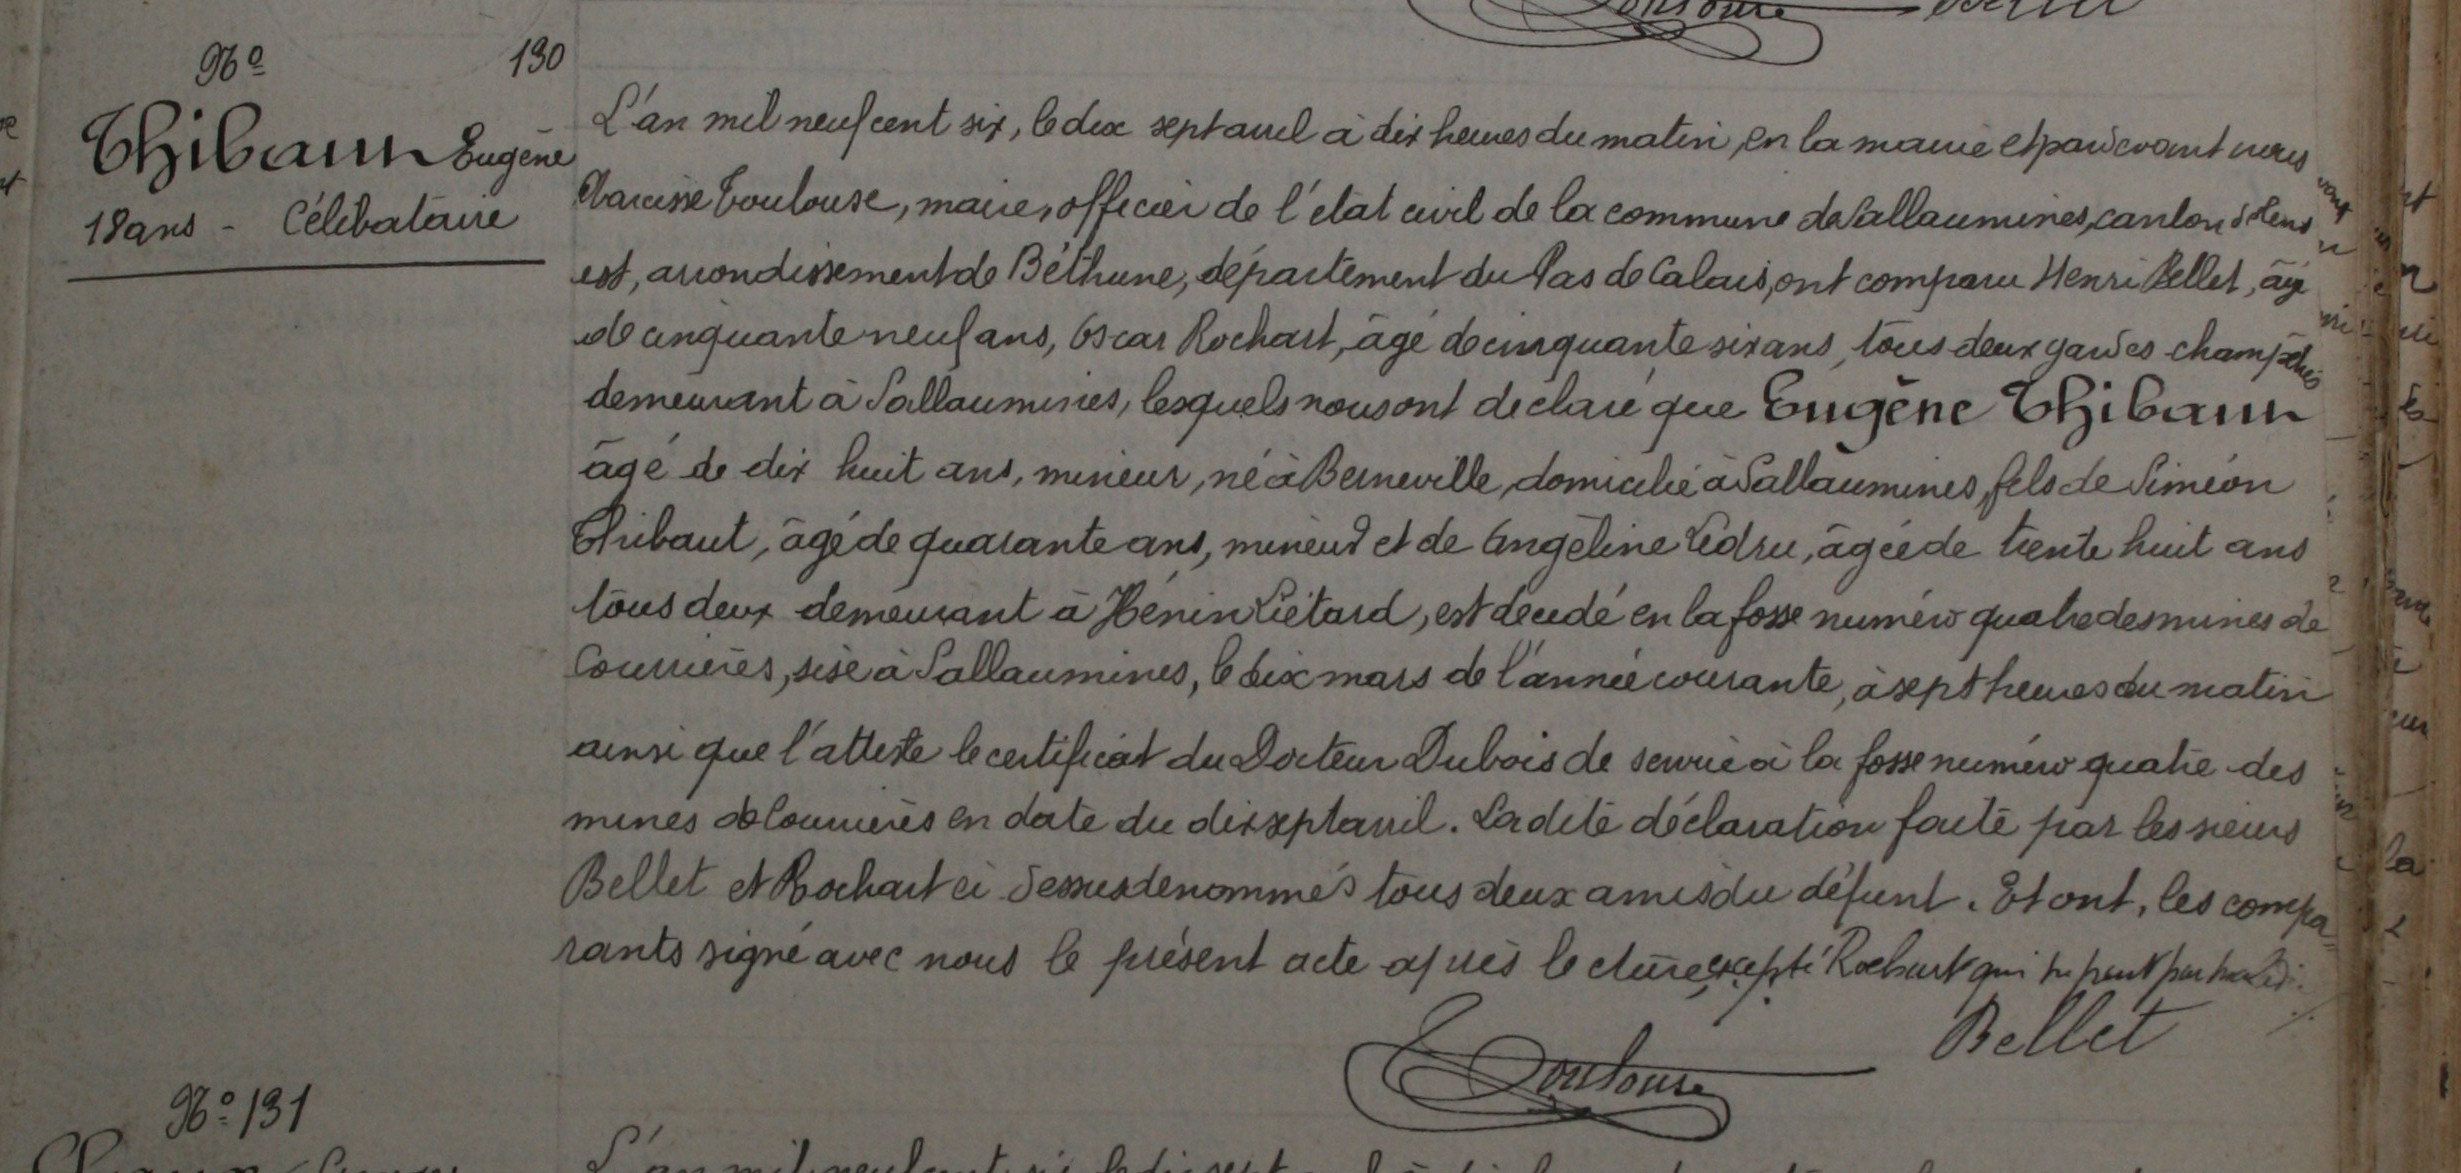 Toulouse Bellet
Nº 130
Thibaut Eugène
18 ans - Célibataire
L'an mil neuf cent six, le dix sept avril à dix heures du matin, en la mairie et pardevant nous
Narcisse Toulouse, maire, officier de l'état civil de la commune de Sallaumines, canton de Lens
est, arrondissement de Béthune, département du Pas de Calais, ont comparu Henri Bellet, âgé
de cinquante neuf ans, Oscar Rochart, âgé de cinquante six ans, tous deux gardes champêtres
demeurant à Sallaumines, lesquels nous ont déclaré que Eugène Thibaut
âgé de dix huit ans, mineur, né à Berneville, domicilié à Sallaumines, fils de Siméon
Thibaut, âgé de quarante ans, mineur et de Angéline Ledru, âgée de trente huit ans
tous deux demeurant à Hénin Liétard, est décédé en la fosse numéro quatre des mines de
Courrières, sise à Sallaumines, le dix mars de l'année courante, à sept heures du matin
ainsi que l'atteste le certificat du Docteur Dubois de service à la fosse numéro quatre des
mines de Courrières en date du dix sept avril. La dite déclaration faite par les sieurs
Bellet et Rochart ci dessus dénommés tous deux amis du défunt. Et ont, les compa=
rants signé avec nous le présent acte après lecture, excepté Rochart qui ne peut par maladie.
Toulouse Bellet
Nº 131
L'an mil neuf cent six le dix sept